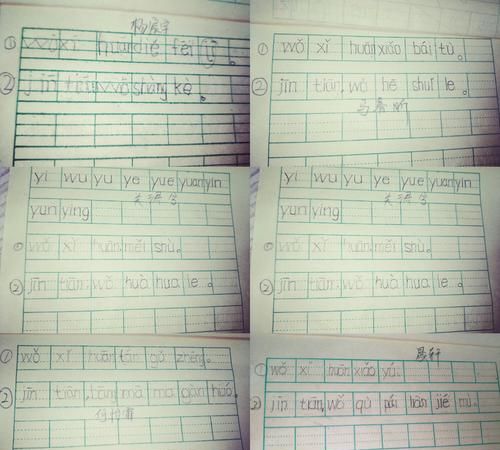 ① wǒ xǐ huān dié fēi
② jīn tiān wǒ shàng kè。
① wǒ xǐ huān xiǎo bái tù。
② jīn tiān, wǒ hē shuǐ le。
yi wu yu ye yue yuan yin
yun ying
① wǒ xǐ huān měi shù。
② jīn tiān, wǒ huà hua le。
yi wu yu ye yue yuan yin
yun ying
① wǒ xǐ huān měi shù。
② jīn tiān, wǒ huà hua le。
① wǒ xǐ huān tán gǔ zhēng。
② jīn tiān, bāng mā ma gàn huó。
① wǒ xǐ huān xiǎo yú。
② jīn tiān, wǒ qù pái liàn jié mù。